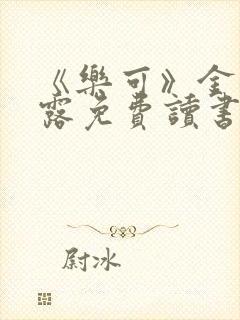 《樂可》全
露免費讀書
尉冰